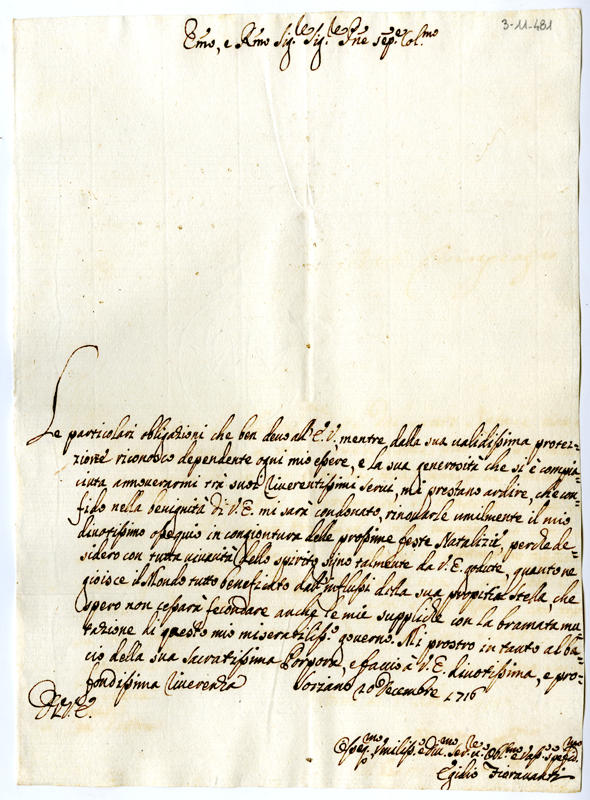 3-11-481
Em̃o, e Rm̃o Sig.re Sig.re Pr̃ne sep.re Col.mo
Le particolari obligazioni che ben devo all'E.V. mentre dalla sua validissima protez=
zione riconosco dependente ogni mio essere, e la sua generosità che si è compia=
ciuta annoverarmi trà suoi riverentissimi servi, mi prestano ardire, che con=
fido nella benignità di V.E. mi sarà condonato, rinovarle umilmente il mio
divotissimo ossequio in congiontura delle prossime feste Natalizie, perche de=
sidero con tutta vivavità dello spirito siino talmente da V.E. godute, quanto ne
gioisce il Mondo tutto beneficato dall'influssi della sua propitia Stella, che
spero non cessarà fecondare anche le mie suppliche con la bramata mu=
tazione di questo mio miserabiliss.o governo. Mi prostro in tanto al ba=
cio della sua sacratissima Porpora, e faccio à V.E. divotissima, e pro=
fondissima riverenza Soriano 20 Decembre 1716
D.V.E.
Umiliss.o e Div.mo Ser.re Obl.mo
Egilio Fioravanti